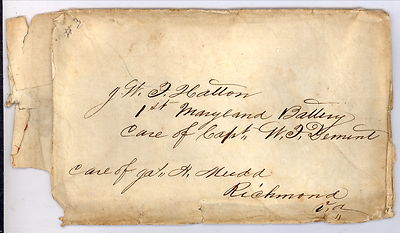 #3
J W. F. Hatton
1st Maryland Battery
Care of Capt. W. F. Dement
Care of Ja's A. Mudd
Richmond
Va